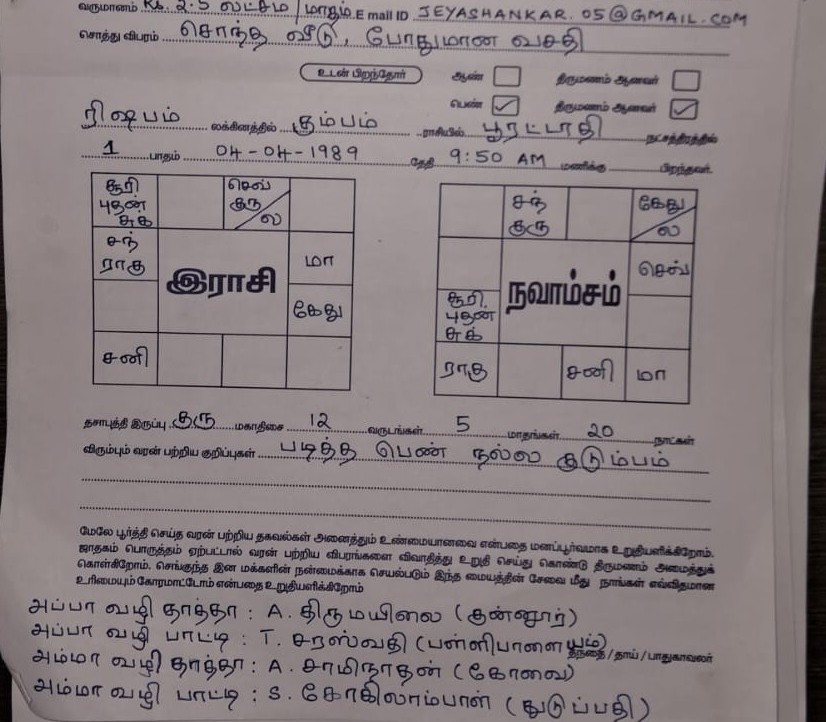 வருமானம் Rs. 2.5 லட்சம் / மாதம் E mail ID JEYASHANKAR.05@GMAIL.COM
சொத்து விபரம் சொந்த வீடு, போதுமான வசதி
உடன் பிறந்தோர் ஆண் திருமணம் ஆனவர்
பெண் ✓ திருமணம் ஆனவர் ✓
ரிஷபம் லக்கினத்தில் கும்பம் ராசியில் பூரட்டாதி நட்சத்திரத்தில்
1 பாதம் 04-04-1989 தேதி 9:50 AM மணிக்கு பிறந்தவர்
சூரி புதன் சுக் செவ் குரு / ல
சந் ராகு மா
இராசி
கேது
சனி
சந் குரு கேது / ல
செவ்
நவாம்சம்
சூரி புதன் சுக்
ராகு சனி மா
தசாபுத்தி இருப்பு குரு மகாதிசை 12 வருடங்கள் 5 மாதங்கள் 20 நாட்கள்
விரும்பும் வரன் பற்றிய குறிப்புகள் படித்த பெண் நல்ல குடும்பம்
மேலே பூர்த்தி செய்த வரன் பற்றிய தகவல்கள் அனைத்தும் உண்மையானவை என்பதை மனப்பூர்வமாக உறுதியளிக்கிறோம்.
ஜாதகம் பொருத்தம் ஏற்பட்டால் வரன் பற்றிய விபரங்களை விவாதித்து உறுதி செய்து கொண்டு திருமணம் அமைத்துக்
கொள்கிறோம். செங்குந்த இன மக்களின் நன்மைக்காக செயல்படும் இந்த மையத்தின் சேவை மீது நாங்கள் எவ்விதமான
உரிமையும் கோரமாட்டோம் என்பதை உறுதியளிக்கிறோம்
அப்பா வழி தாத்தா : A. திருமயிலை (குன்னூர்)
அப்பா வழி பாட்டி : T. சரஸ்வதி (பள்ளிபாளையம்)
தந்தை / தாய் / பாதுகாவலர்
அம்மா வழி தாத்தா : A. சாமிநாதன் (கோவை)
அம்மா வழி பாட்டி : S. கோகிலாம்பாள் (துடுப்பதி)